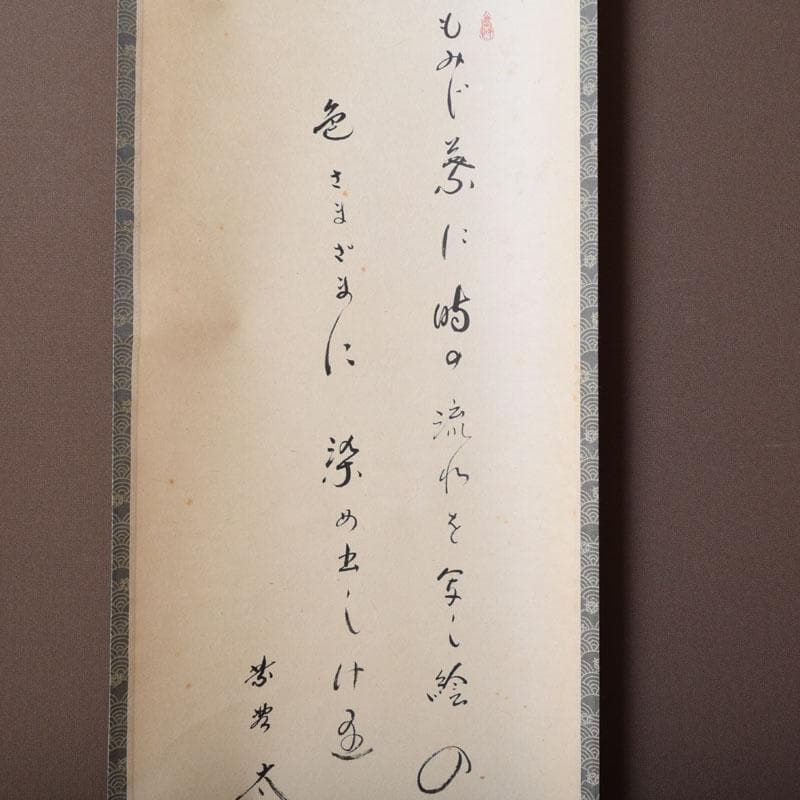 もみじ葉に時の流れを写し絵の
色さまざまに染め出しけ遊
太